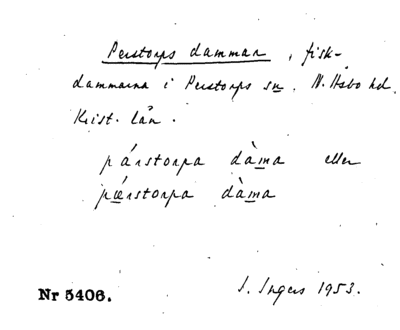 Perstorps dammar, fisk-
dammarna i Perstorps sn. N. Åsbo hd.
Krist. län.
párstorpa dàma eller
pǽrstorpa dàma
Nr 5406.
I. Ingers 1953.